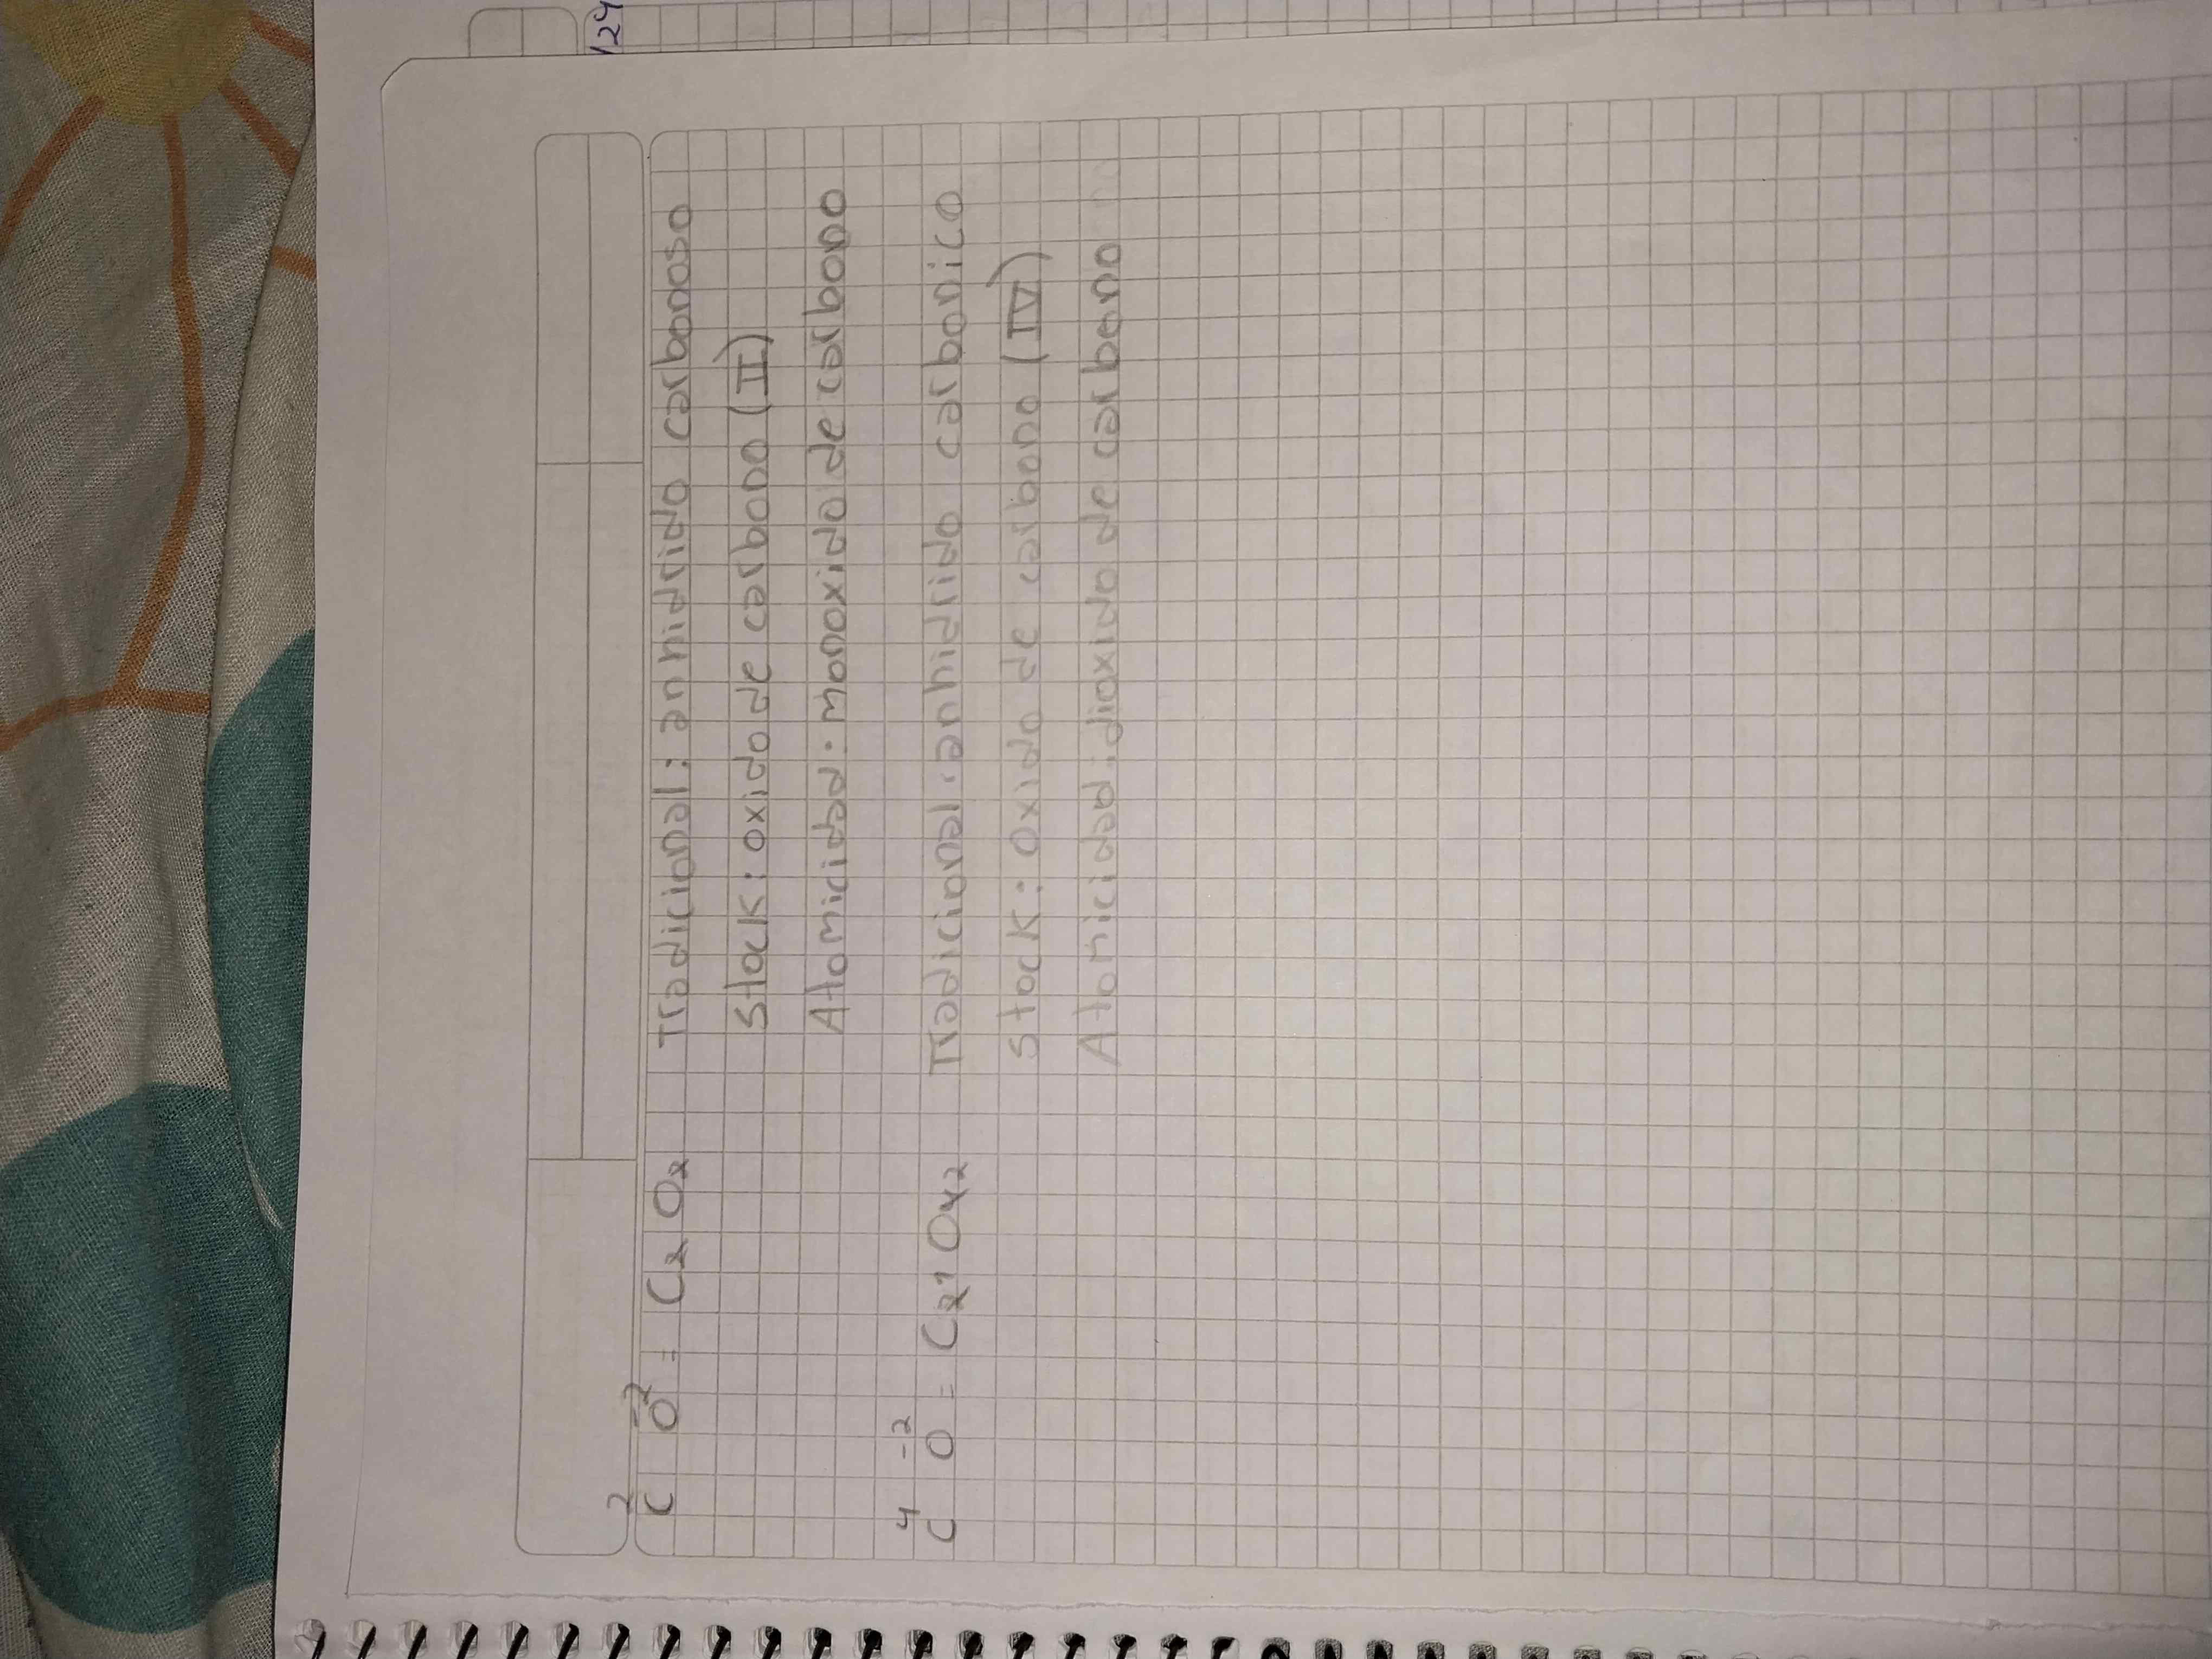 124
C² O⁻² = C₂ O₂ Tradicional: anhidrido carbonoso
Stock: oxido de carbono (II)
Atomicidad: monoxido de carbono
C⁴ O⁻² = C₂₁ O₄₂ Tradicional: anhidrido carbonico
Stock: Oxido de carbono (IV)
Atomicidad: dioxido de carbono